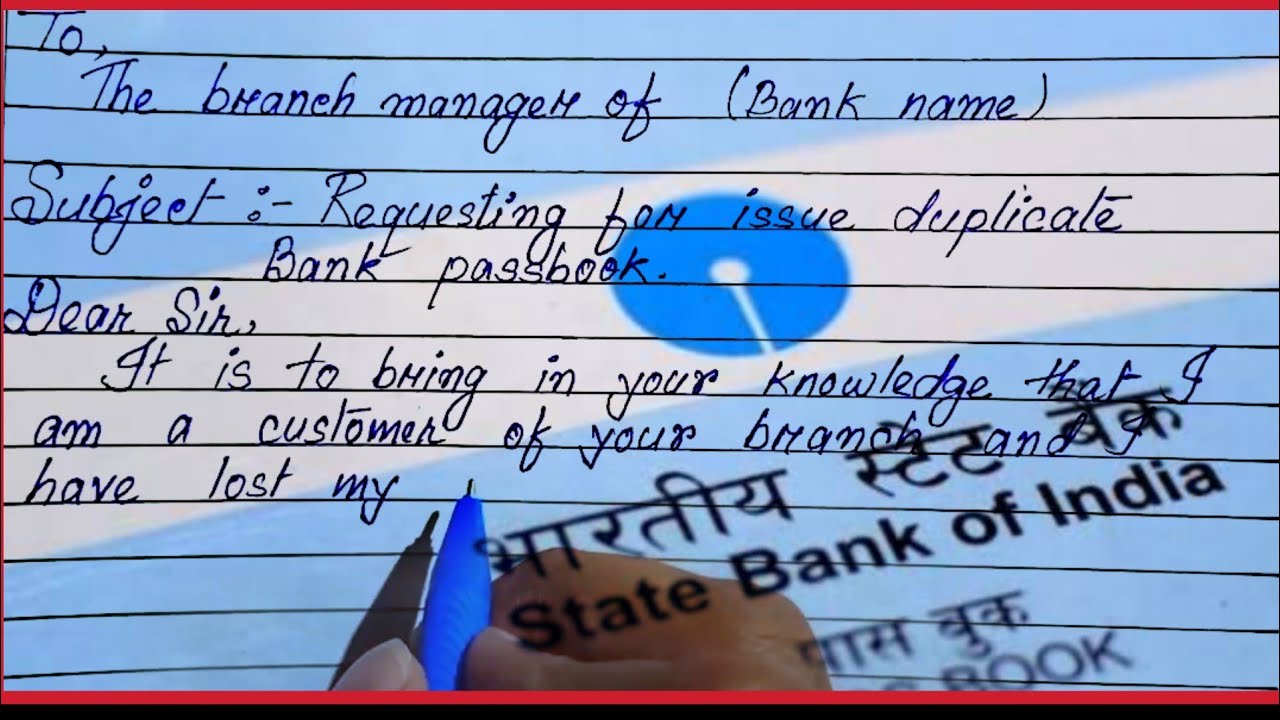 To,
The branch manager of (Bank name)
Subject :- Requesting for issue duplicate
Bank passbook.
Dear Sir,
It is to bring in your knowledge that I
am a customer of your branch and I
have lost my
भारतीय स्टेट बैंक
State Bank of India
पास बुक
BOOK